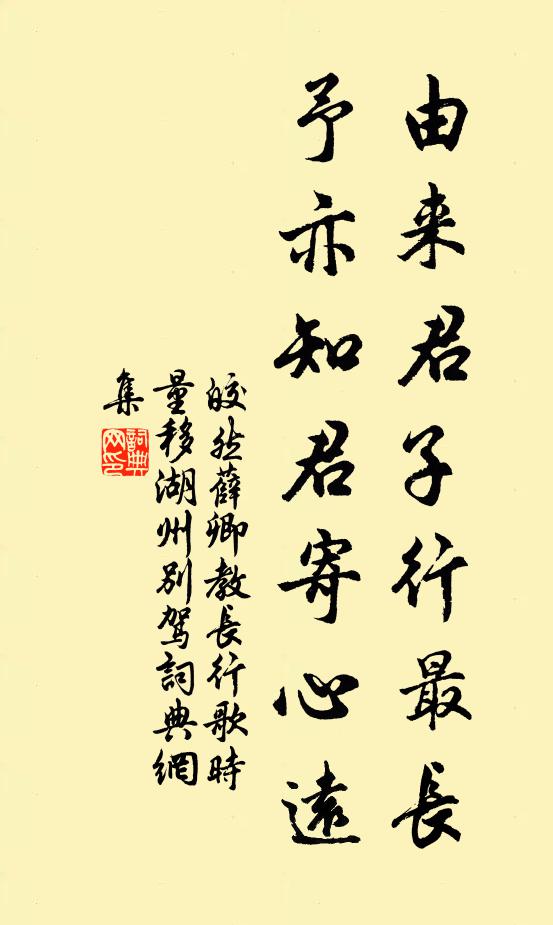 由来君子行最長
予亦知君寄心遠
皎然薛卿教長行歌時
量移湖州别駕詞典網
集
詞典
网印